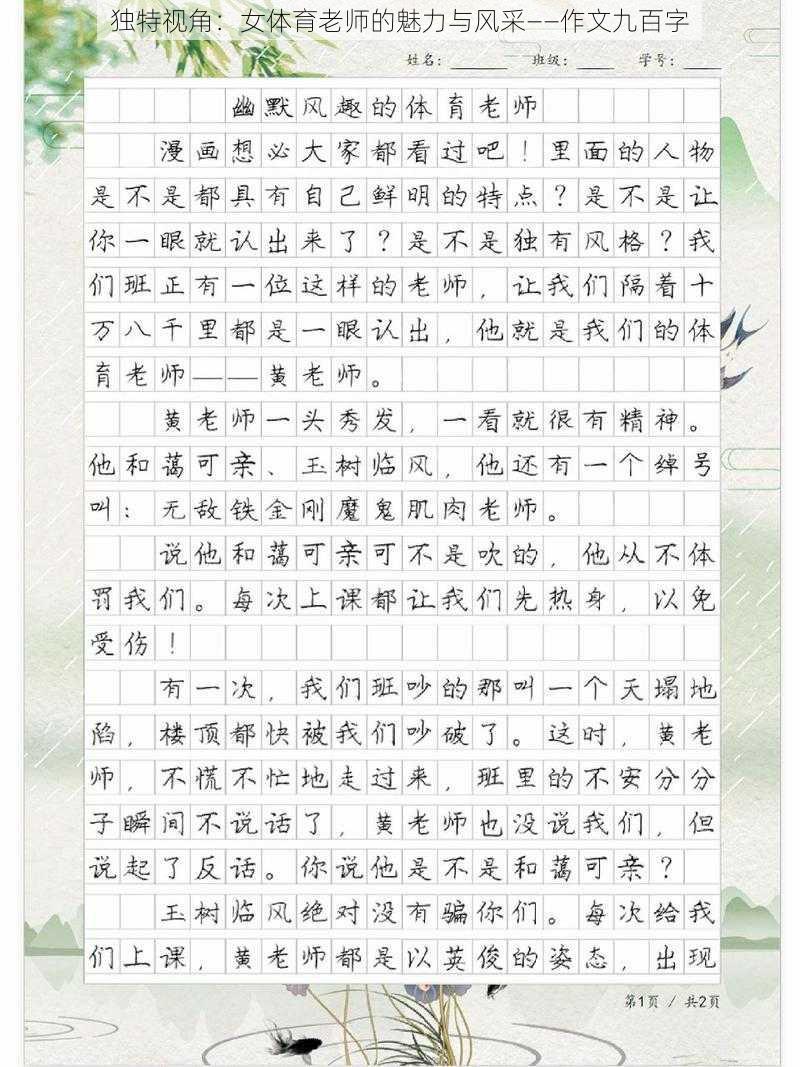 独特视角：女体育老师的魅力与风采——作文九百字
姓名：______ 班级：____ 学号：____
幽默风趣的体育老师
漫画想必大家都看过吧！里面的人物
是不是都具有自己鲜明的特点？是不是让
你一眼就认出来了？是不是独有风格？我
们班正有一位这样的老师，让我们隔着十
万八千里都是一眼认出，他就是我们的体
育老师——黄老师。
黄老师一头秀发，一看就很有精神。
他和蔼可亲、玉树临风，他还有一个绰号
叫：无敌铁金刚魔鬼肌肉老师。
说他和蔼可亲可不是吹的，他从不体
罚我们。每次上课都让我们先热身，以免
受伤！
有一次，我们班吵的那叫一个天塌地
陷，楼顶都快被我们吵破了。这时，黄老
师，不慌不忙地走过来，班里的不安分分
子瞬间不说话了，黄老师也没说我们，但
说起了反话。你说他是不是和蔼可亲？
玉树临风绝对没有骗你们。每次给我
们上课，黄老师都是以英俊的姿态，出现
第1页 / 共2页